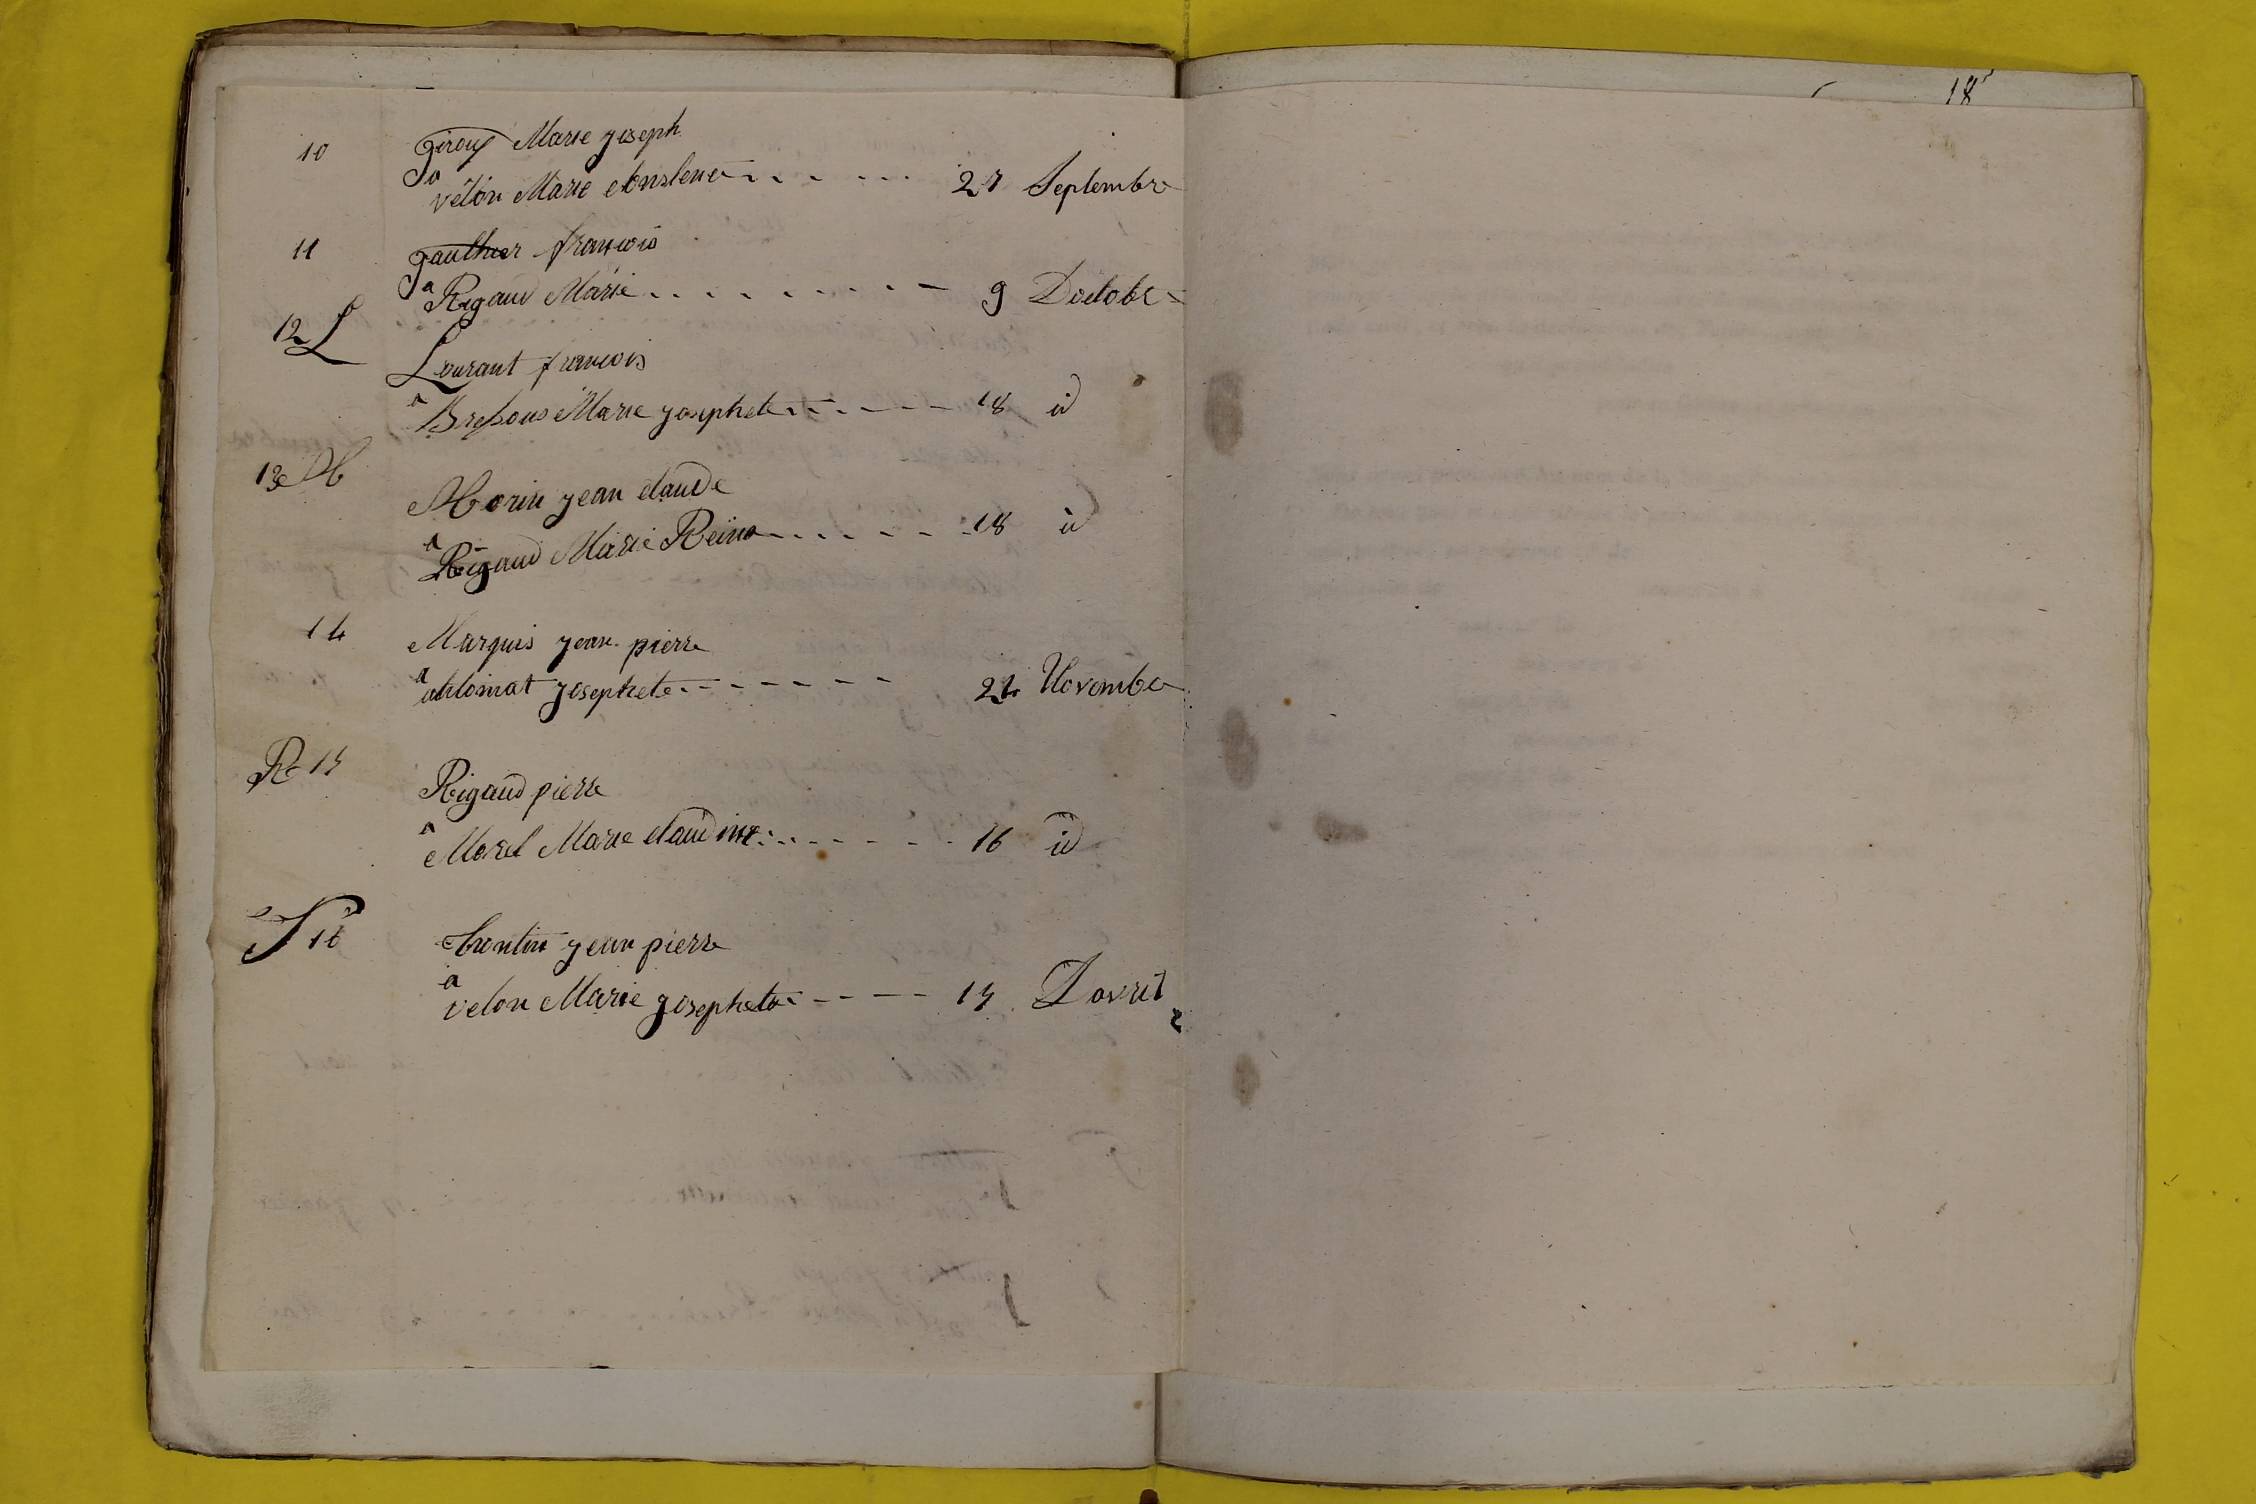 18
10 Giroux Marie joseph
a vélon Marie 27 Septembre
11 gauthier françois
a Rigaud Marie 9 Doctobre
12 L Laurant françois
a Marie josephete 18 id
13 M Morin jean claude
a Rigaud Marie Reine 18 id
14 Marquis jean pierre
a josephete 24 Novembre
R 15 Rigaud pierre
a Morel Marie claudine 16 id
T 16 trontin jean pierre
a velon Marie josephete 15 Davril